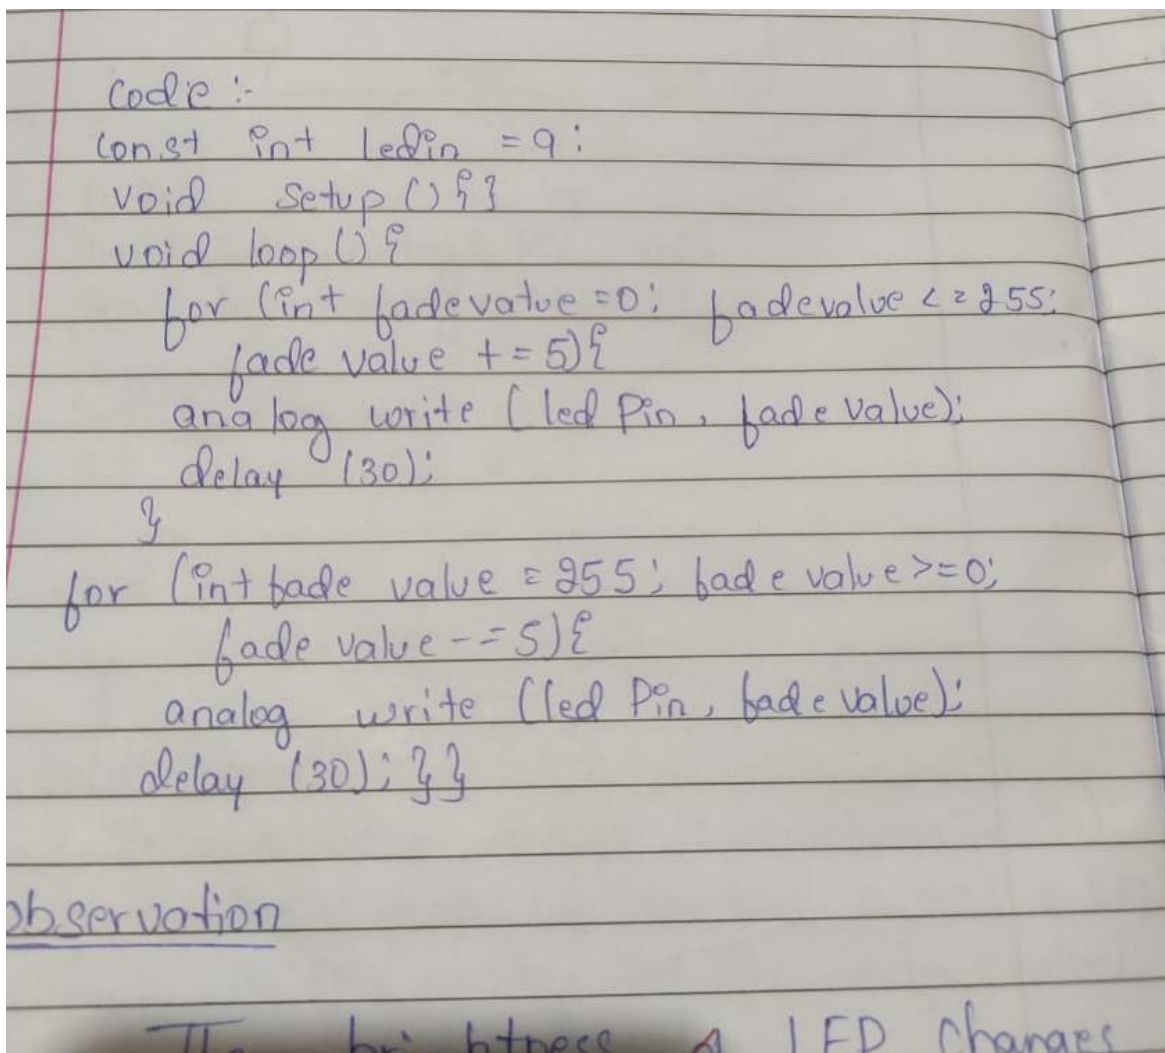 Code :-
const int ledin = 9;
void setup () {}
void loop () {
for (int fadevalue = 0; fadevalue <= 255;
fade value += 5) {
analog write (led Pin, fade value);
delay (30);
}
for (int fade value = 255; fade value >= 0;
fade value -= 5) {
analog write (led Pin, fade value);
delay (30); } }
observation
brightness LED changes